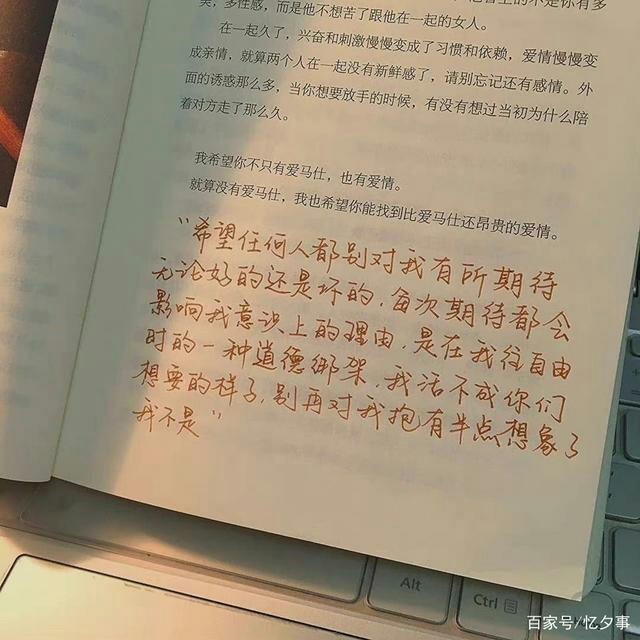 美，多性感，而是他不想苦了跟他在一起的女人。
在一起久了，兴奋和刺激慢慢变成了习惯和依赖，爱情慢慢变
成亲情，就算两个人在一起没有新鲜感了，请别忘记还有感情。外
面的诱惑那么多，当你想要放手的时候，有没有想过当初为什么陪
着对方走了那么久。
我希望你不只有爱马仕，也有爱情。
就算没有爱马仕，我也希望你能找到比爱马仕还昂贵的爱情。
“希望任何人都别对我有所期待
无论好的还是坏的，每次期待都会
影响我意识上的理由，是在我往自由
时的一种道德绑架，我活不成你们
想要的样子，别再对我抱有半点想象了
我不是”
Alt
Ctrl
百家号/忆夕事